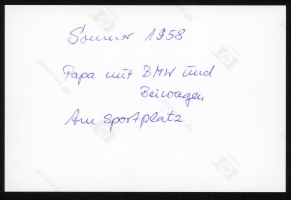 Sommer 1958
Papa mit BMW und
Beiwagen
Am Sportplatz